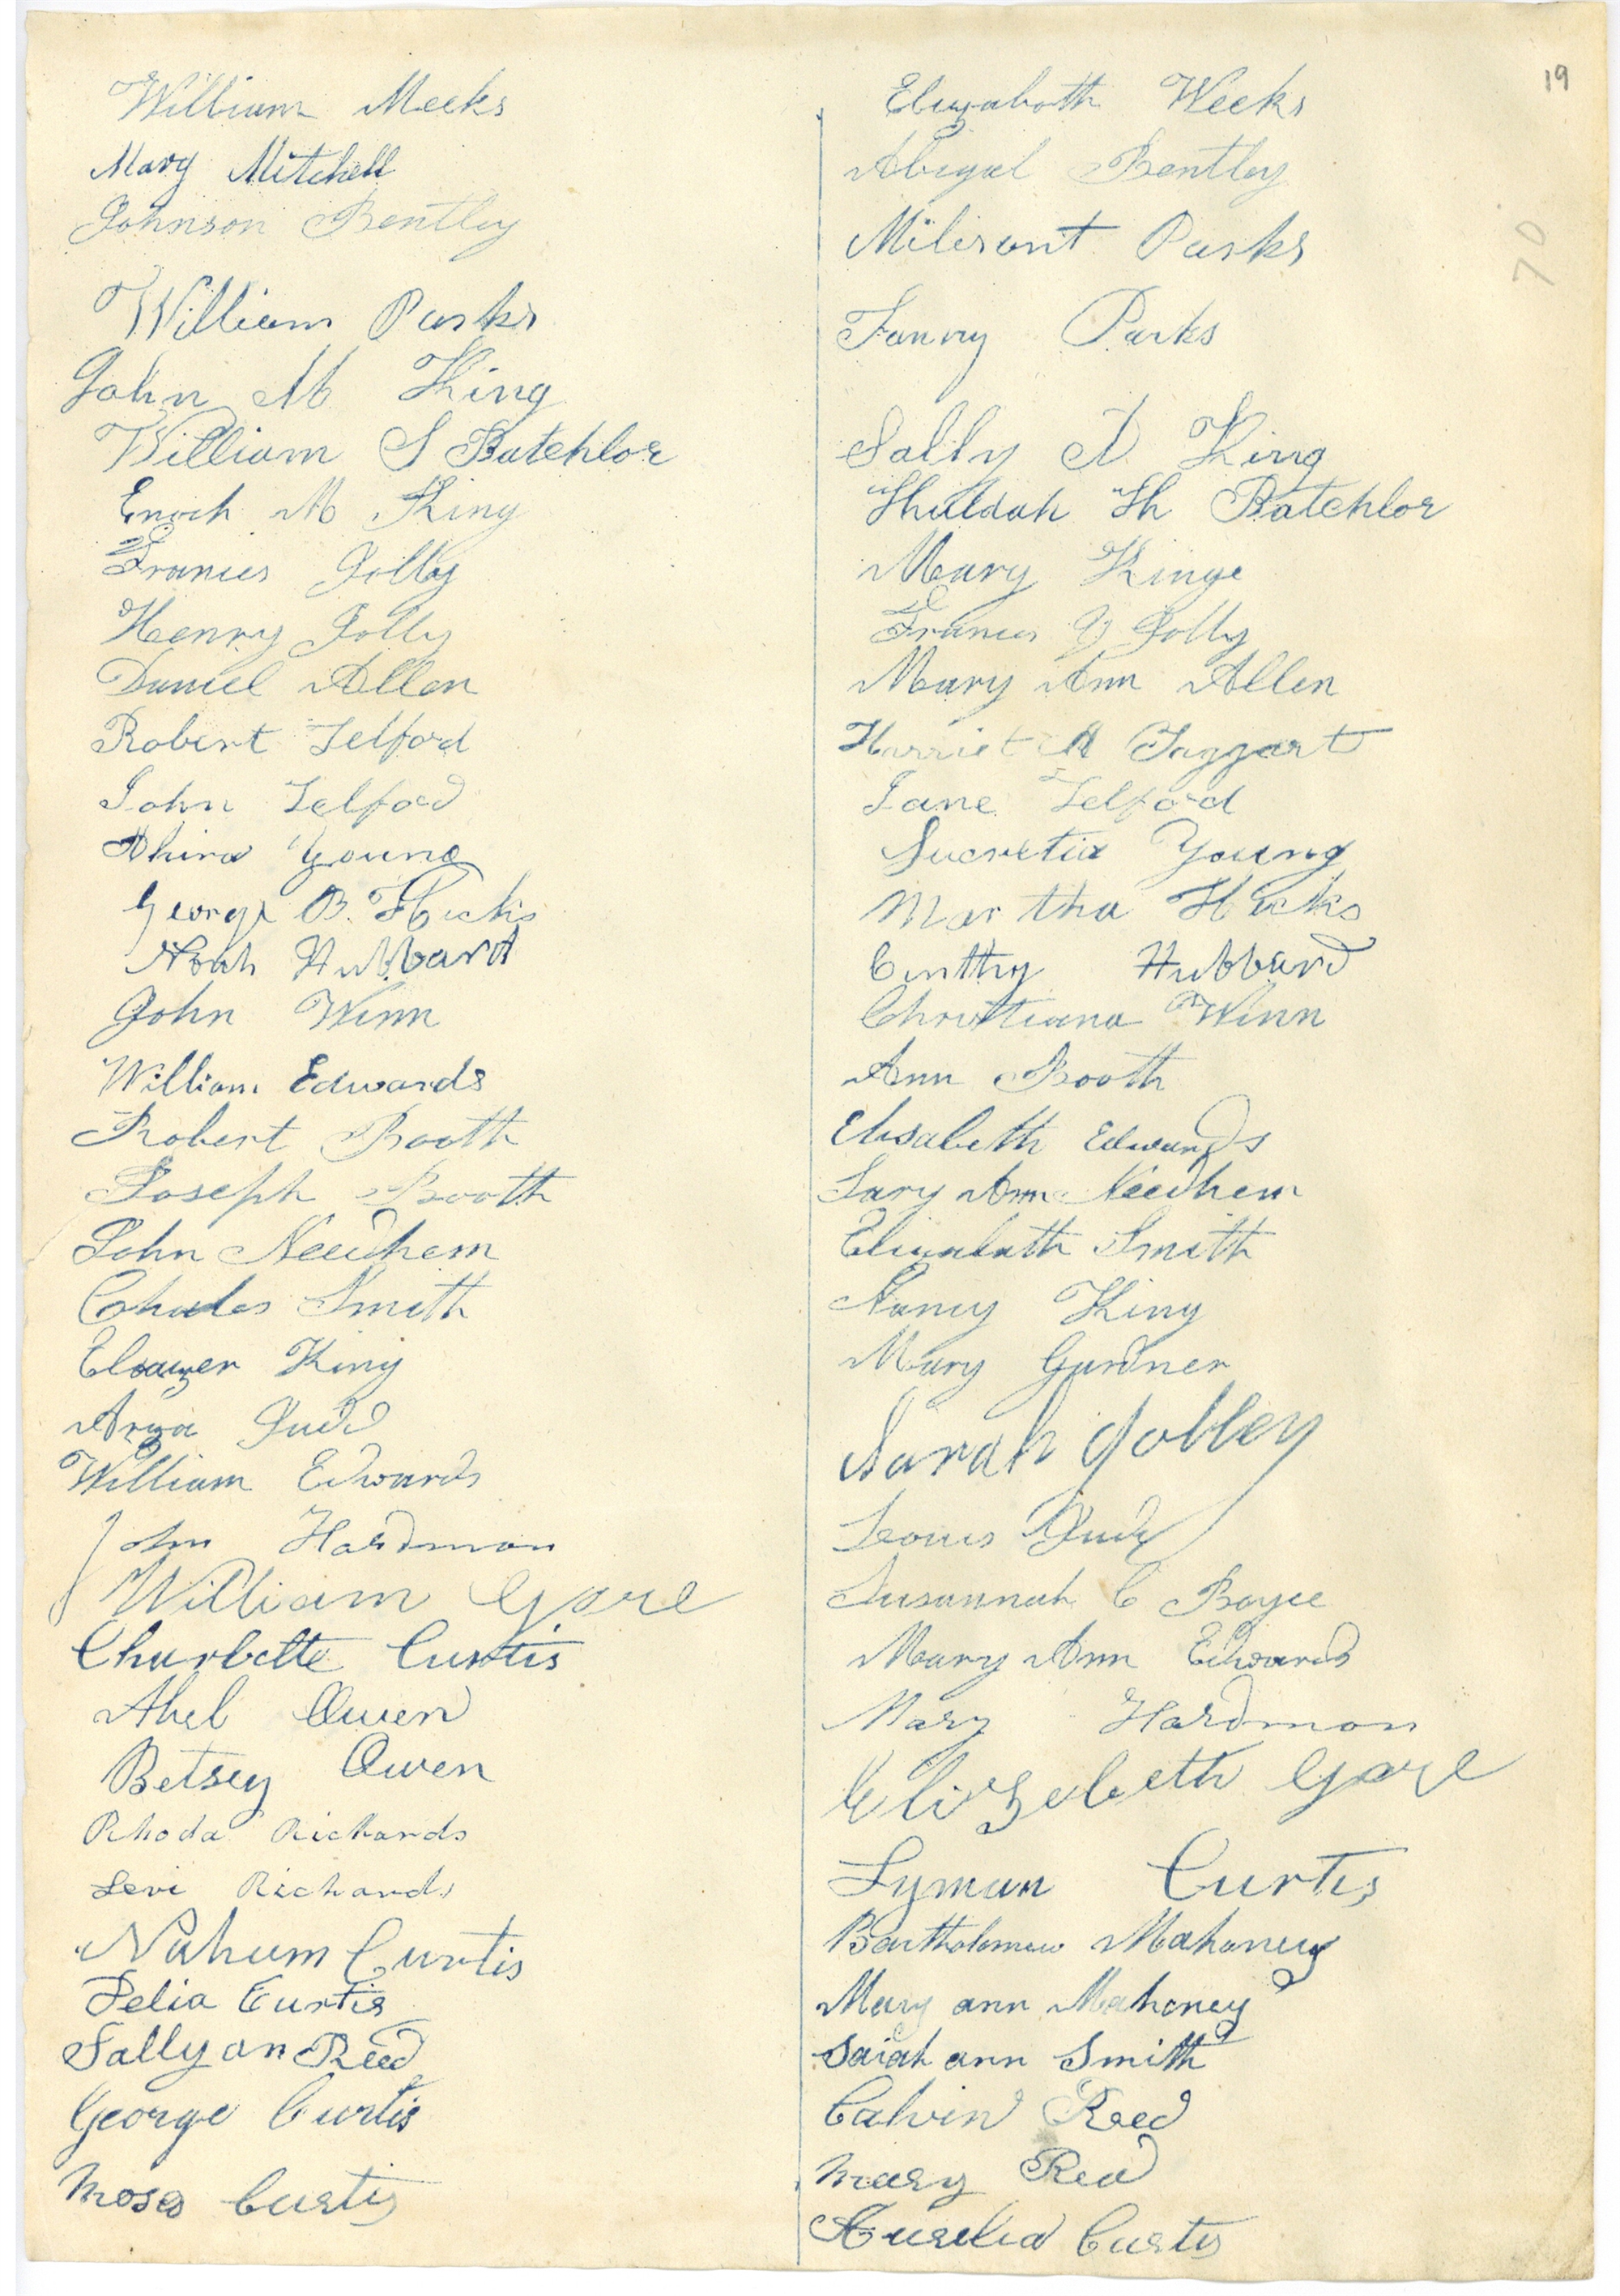 19
70
William Meeks
Mary Mitchell
Johnson Bentley
William Parks
John M King
William S Batchlor
Enoch M King
Francis Jolly
Henry Jolly
Daniel Allen
Robert Telford
John Telford
Ahira Young
George B. Hicks
Noah Hubbard
John Winn
William Edwards
Robert Booth
Joseph Booth
John Needhem
Charles Smith
Eleazer King
Arza Judd
William Edwards
John Hardman
William Gore
Charlotte Curtis
Abel Owen
Betsey Owen
Rhoda Richards
Levi Richards
Nahum Curtis
Delia Curtis
Sally an Reed
George Curtis
Moses Curtis
Elizabeth Weeks
Abigal Bentley
Milisant Parks
Fanny Parks
Sally A King
Huldah H Batchlor
Mary Kinge
Frances Jolly
Mary Ann Allen
Harriet A Taggart
Jane Telford
Lucretia Young
Martha Hicks
Cinthy Hubbard
Christiana Winn
Ann Booth
Elisabeth Edwards
Ann Needhem
Elizabeth Smith
Nancy King
Mary Gardner
Sarah Jolley
Lois Judd
Susannah C Boyce
Mary Ann Edwards
Mary Hardman
Elizebeth Gore
Lyman Curtis
Bartholomew Mahoney
Mary ann Mahoney
Sarah ann Smith
Calvin Reed
Mary Reed
Aurelia Curtis